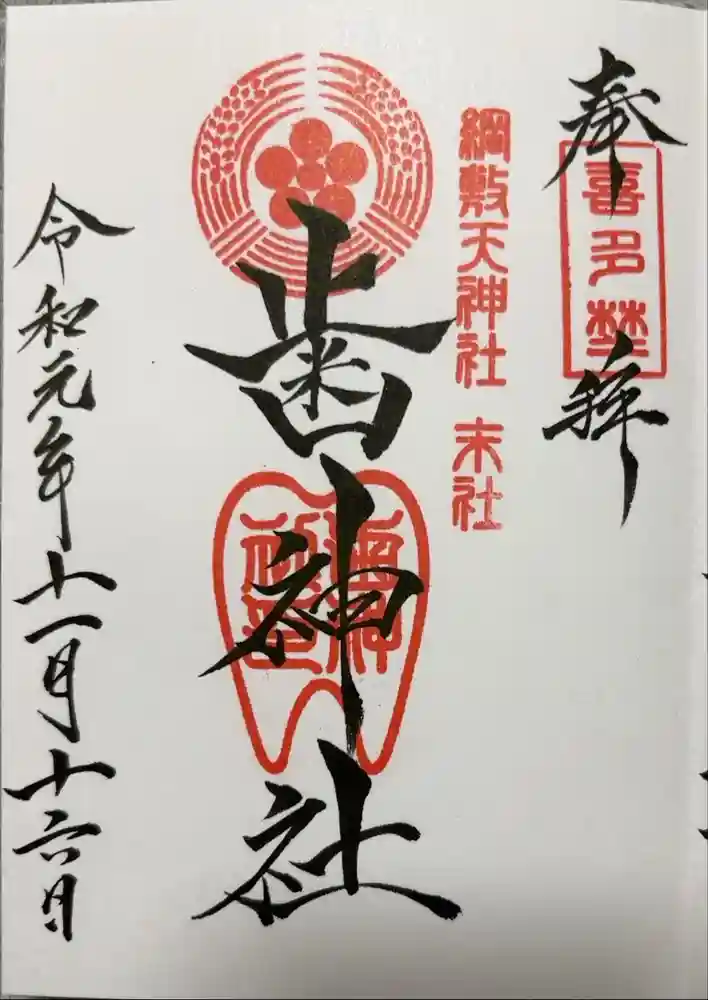 奉拝
喜多埜
綱敷天神社 末社
歯神社
歯神社之印
令和元年十一月十六日